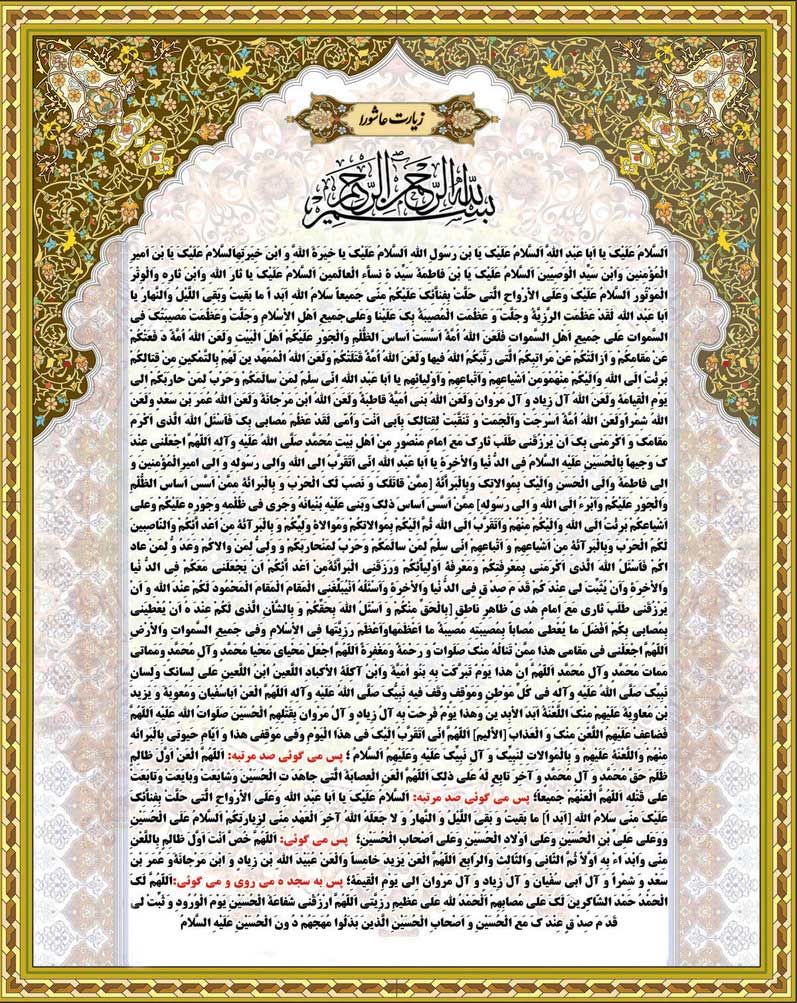 زیارت عاشورا
بسم الله الرحمن الرحیم
اَلسَّلامُ عَلَیْکَ یا اَبا عَبْدِ اللهِ اَلسَّلامُ عَلَیْکَ یا بْنَ رَسُولِ اللهِ اَلسَّلامُ عَلَیْکَ یا خِیَرَةَ اللهِ وَ ابْنَ خِیَرَتِهِاَلسَّلامُ عَلَیْکَ یا بْنَ اَمیرِ
الْمُؤْمِنینَ وَابْنَ سَیِّدِ الْوَصِیّینَ اَلسَّلامُ عَلَیْکَ یا بْنَ فاطِمَةَ سَیِّدَ ةِ نِساَّءِ الْعالَمینَ اَلسَّلامُ عَلَیْکَ یا ثارَ اللهِ وَابْنَ ثارِهِ وَالْوِتْرَ
الْمَوْتُورَ اَلسَّلامُ عَلَیْکَ وَعَلَی الأَرْواحِ الَّتی حَلَّتْ بِفِناَّئِکَ عَلَیْکُمْ مِنّی جَمیعاً سَلامُ اللهِ اَبَدا ما بَقیتُ وَبَقِیَ اللَّیْلُ وَالنَّهارُ یا
اَبا عَبْدِ اللهِ لَقَدْ عَظُمَتِ الرَّزِیَّةُ وَجَلَّتْ وَ عَظُمَتِ الْمُصیبَةُ بِکَ عَلَیْنا وَعَلی جَمیعِ اَهْلِ الأِسْلامِ وَجَلَّتْ وَعَظُمَتْ مُصیبَتُکَ فِی
السَّمواتِ عَلی جَمیعِ اَهْلِ السَّمواتِ فَلَعَنَ اللهُ اُمَّةً اَسَّسَتْ اَساسَ الظُّلْمِ وَالْجَوْرِ عَلَیْکُمْ اَهْلَ الْبَیْتِ وَلَعَنَ اللهُ اُمَّةً دَ فَعَتْکُمْ
عَنْ مَقامِکُمْ وَ اَزالَتْکُمْ عَنْ مَراتِبِکُمُ الَّتی رَتَّبَکُمُ اللهُ فیها وَلَعَنَ اللهُ اُمَّةً قَتَلَتْکُمْ وَلَعَنَ اللهُ الْمُمَهِّدینَ لَهُمْ بِالتَّمْکینِ مِنْ قِتالِکُمْ
بَرِئْتُ اِلَی اللهِ وَاِلَیْکُمْ مِنْهُمْوَمِنْ اَشْیاعِهِمْ وَاَتْباعِهِمْ وَاَوْلِیائِهِمْ یا اَبا عَبْدِ اللهِ اِنّی سِلْمٌ لِمَنْ سالَمَکُمْ وَحَرْبٌ لِمَنْ حارَبَکُمْ اِلی
یَوْمِ الْقِیامَةِ وَلَعَنَ اللهُ آلَ زِیادٍ وَ آلَ مَرْوانَ وَلَعَنَ اللهُ بَنی اُمَیَّةَ قاطِبَةً وَلَعَنَ اللهُ ابْنَ مَرْجانَةَ وَلَعَنَ اللهُ عُمَرَ بْنَ سَعْدٍ وَلَعَنَ
اللهُ شِمْراًوَلَعَنَ اللهُ اُمَّةً اَسْرَجَتْ وَاَلْجَمَتْ وَ تَنَقَّبَتْ لِقِتالِکَ بِاَبی اَنْتَ وَاُمّی لَقَدْ عَظُمَ مُصابی بِکَ فَاَسْئَلُ اللهَ الَّذی اَکْرَمَ
مَقامَکَ وَ اَکْرَمَنی بِکَ اَنْ یَرْزُقَنی طَلَبَ ثارِکَ مَعَ اِمامٍ مَنْصُورٍ مِنْ اَهْلِ بَیْتِ مُحَمَّدٍ صَلَّی اللهُ عَلَیْهِ وَآلِهِ اَللّهُمَّ اجْعَلْنی عِنْدَ
کَ وَجیهاً بِالْحُسَیْنِ عَلَیْهِ السَّلامُ فِی الدُّ نْیا وَالآخِرَةِ یا اَبا عَبْدِ اللهِ اِنّی اَتَقَرَّبُ اِلی اللهِ وَاِلی رَسُولِهِ وَ اِلی امیرِالْمُؤْمِنینَ وَ
اِلی فاطِمَةَ وَاِلَی الْحَسَنِ وَاِلَیْکَ بِمُوالاتِکَ وَبِالْبَراَّئَةِ [مِمَّنْ قاتَلَکَ وَ نَصَبَ لَکَ الْحَرْبَ وَ بِالْبَرائَةِ مِمَّنْ اَسَّسَ اَساسَ الظُّلْمِ
وَالْجَوْرِ عَلَیْکُمْ وَاَبْرَءُ اِلَی اللهِ وَ اِلی رَسُولِهِ] مِمَّنْ اَسَّسَ اَساسَ ذلِکَ وَبَنی عَلَیْهِ بُنْیانَهُ وَجَری فی ظُلْمِهِ وَجَوْرِهِ عَلَیْکُمْ وَعَلی
اَشْیاعِکُمْ بَرِئْتُ اِلَی اللهِ وَاِلَیْکُمْ مِنْهُمْ وَاَتَقَرَّبُ اِلَی اللهِ ثُمَّ اِلَیْکُمْ بِمُوالاتِکُمْ وَمُوالاةِ وَلِیِّکُمْ وَ بِالْبَرآئَةِ مِنْ اَعْدآئِکُمْ وَالنّاصِبینَ
لَکُمُ الْحَرْبَ وَبِالْبَرآئَةِ مِنْ اَشْیاعِهِمْ وَ اَتْباعِهِمْ اِنّی سِلْمٌ لِمَنْ سالَمَکُمْ وَحَرْبٌ لِمَنْحارَبَکُمْ وَ وَلِیٌّ لِمَنْ والاکُمْ وَعَدُ وٌّ لِمَنْ عاد
اکُمْ فَاَسْئَلُ اللهَ الَّذی اَکْرَمَنی بِمَعْرِفَتِکُمْ وَمَعْرِفَةِ اَوْلِیاَّئِکُمْ وَرَزَقَنِی الْبَراَّئَةَمِنْ اَعْد آئِکُمْ اَنْ یَجْعَلَنی مَعَکُمْ فِی الدُّ نْیا
وَالآخِرَةِ وَاَنْ یُثَبِّتَ لی عِنْدَ کُمْ قَدَ مَ صِدْ قٍ فِی الدُّ نْیا وَالآخِرَةِ وَاَسْئَلُهُ اَنْیُبَلِّغَنِی الْمَقامَ الْمَقامَ الْمَحْمُودَ لَکُمْ عِنْدَ اللهِ وَ اَنْ
یَرْزُقَنی طَلَبَ ثاری مَعَ اِمامٍ هُدیً ظاهِرٍ ناطِقٍ [بِالْحَقِّ مِنْکُمْ وَ اَسْئَلُ اللهَ بِحَقِّکُمْ وَ بِالشَّاْنِ الَّذی لَکُمْ عِنْدَ هُ اَنْ یُعْطِیَنی
بِمُصابی بِکُمْ اَفْضَلَ ما یُعْطی مُصاباً بِمُصیبَتِهِ مُصیبَةً ما اَعْظَمَهاوَاَعْظَمَ رَزِیَّتَها فِی الأِسْلامِ وَفی جَمیعِ السَّمواتِ وَالأَرْضِ
اَللّهُمَّ اجْعَلْنی فی مَقامی هذا مِمَّنْ تَنالُهُ مِنْکَ صَلَواتٌ وَ رَحْمَةٌ وَمَغْفِرَةٌ اَللّهُمَّ اجْعَلْ مَحْیایَ مَحْیا مُحَمَّدٍ وَآلِ مُحَمَّدٍ وَمَماتی
مَماتَ مُحَمَّدٍ وَآلِ مُحَمَّدٍ اَللّهُمَّ اِنَّ هذا یَوْمٌ تَبَرَّکَتْ بِهِ بَنُو اُمَیَّةَ وَابْنُ آکِلَةِ الأَکبادِ اللَّعینُ ابْنُ اللَّعینِ عَلی لِسانِکَ وَلِسانِ
نَبِیِّکَ صَلَّی اللهُ عَلَیْهِ وَآلِهِ فی کُلِّ مَوْطِنٍ وَمَوْقِفٍ وَقَفَ فیهِ نَبِیُّکَ صَلَّی اللهُ عَلَیْهِ وَآلِهِ اَللّهُمَّ الْعَنْ اَباسُفْیانَ وَمُعوِیَةَ وَ یَزیدَ
بْنَ مُعاوِیَةَ عَلَیْهِمْ مِنْکَ اللَّعْنَةُ اَبَدَ الأَبِدینَ وَهذا یَوْمٌ فَرِحَتْ بِهِ آلُ زِیادٍ وَ آلُ مَرْوانَ بِقَتْلِهِمُ الْحُسَیْنَ صَلَواتُ اللهِ عَلَیْهِ اَللّهُمَّ
فَضاعِفْ عَلَیْهِمُ اللَّعْنَ مِنْکَ وَ الْعَذابَ [الاَلیم] اَللّهُمَّ اِنّی اَتَقَرَّبُ اِلَیْکَ فی هذَا الْیَوْمِ وَفی مَوْقِفی هذا وَ اَیّامِ حَیوتی بِالْبَرائَةِ
مِنْهُمْ وَاللَّعْنَةِ عَلَیْهِمْ وَ بِالْمُوالاتِ لِنَبِیِّکَ وَ آلِ نَبِیِّکَ عَلَیْهِ وَعَلَیْهِمُ اَلسَّلامُ ؛ پس می گوئی صد مرتبه: اَللّهُمَّ الْعَنْ اَوَّلَ ظالِمٍ
ظَلَمَ حَقَّ مُحَمَّدٍ وَ آلِ مُحَمَّدٍ وَ آخِرَ تابِعٍ لَهُ عَلی ذلِکَ اَللّهُمَّ الْعَنِ الْعِصابَةَ الَّتی جاهَدَ تِ الْحُسَیْنَ وَشایَعَتْ وَبایَعَتْ وَتابَعَتْ
عَلی قَتْلِهِ اَللّهُمَّ الْعَنْهُمْ جَمیعاً؛ پس می گوئی صد مرتبه: اَلسَّلامُ عَلَیْکَ یا اَبا عَبْدِ اللهِ وَعَلَی الأَرْواحِ الَّتی حَلَّتْ بِفِناَّئِکَ
عَلَیْکَ مِنّی سَلامُ اللهِ [اَبَداً] ما بَقیتُ وَ بَقِیَ اللَّیْلُ وَ النَّهارُ وَ لا جَعَلَهُ اللهُ آخِرَ الْعَهْدِ مِنّی لِزِیارَتِکُمْ اَلسَّلامُ عَلَی الْحُسَیْنِ
وَوعَلی عَلِیِّ بْنِ الْحُسَیْنِ وَ عَلی اَوْلادِ الْحُسَیْنِ وَعَلی اَصْحابِ الْحُسَیْنِ؛ پس می گوئی: اَللّهُمَّ خُصَّ اَنْتَ اَوَّلَ ظالِمٍ بِاللَّعْنِ
مِنّی وَابْدَ اءْ بِهِ اَوَّلاً ثُمَّ الثّانِیَ وَالثّالِثَ وَالرّابِعَ اَللّهُمَّ الْعَنْ یَزیدَ خامِساً وَالْعَنْ عُبَیْدَ اللهِ بْنَ زِیادٍ وَ ابْنَ مَرْجانَةَوَ عُمَرَ بْنَ
سَعْدٍ وَ شِمْراً وَ آلَ اَبی سُفْیانَ وَ آلَ زِیادٍ وَ آلَ مَرْوانَ اِلی یَوْمِ الْقِیمَةِ؛ پس به سجد ه می روی و می گوئی:اَللّهُمَّ لَکَ
الْحَمْدُ حَمْدَ الشّاکِرینَ لَکَ عَلی مُصابِهِمْ اَلْحَمْدُ للهِ عَلی عَظیمِ رَزِیَّتی اَللّهُمَّ ارْزُقْنی شَفاعَةَ الْحُسَیْنِ یَوْمَ الْوُرُودِ وَ ثَبِّتْ لی
قَدَ مَ صِدْ قٍ عِنْدَ کَ مَعَ الْحُسَیْنِ وَ اَصْحابِ الْحُسَیْنِ الَّذینَ بَذَلُوا مُهَجَهُمْ دُ ونَ الْحُسَیْنِ عَلَیْهِ السَّلامُ